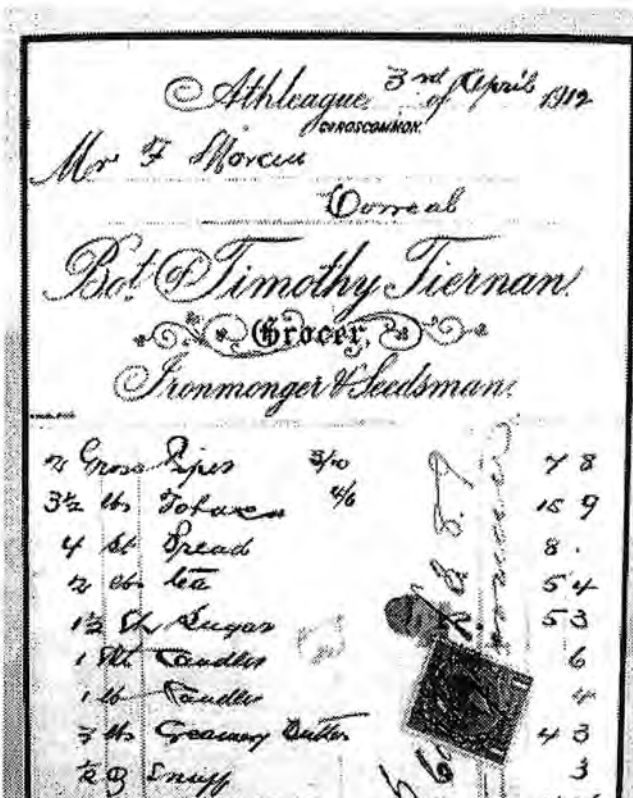 Athleague, 3rd of April 1912
CO ROSCOMMON.
Mr F
Correal
Bot. of Timothy Tiernan.
Grocer,
Ironmonger & Seedsman.
2 Gross Pipes 3/10 7 8
3½ lbs Tobacco 4/6 15 9
4 St Bread 8 .
2 lbs tea 5 4
1½ St Sugar 5 3
1 Candles 6
1 lb Candles 4
3 lbs Creamery Butter 4 3
½ Snuff 3